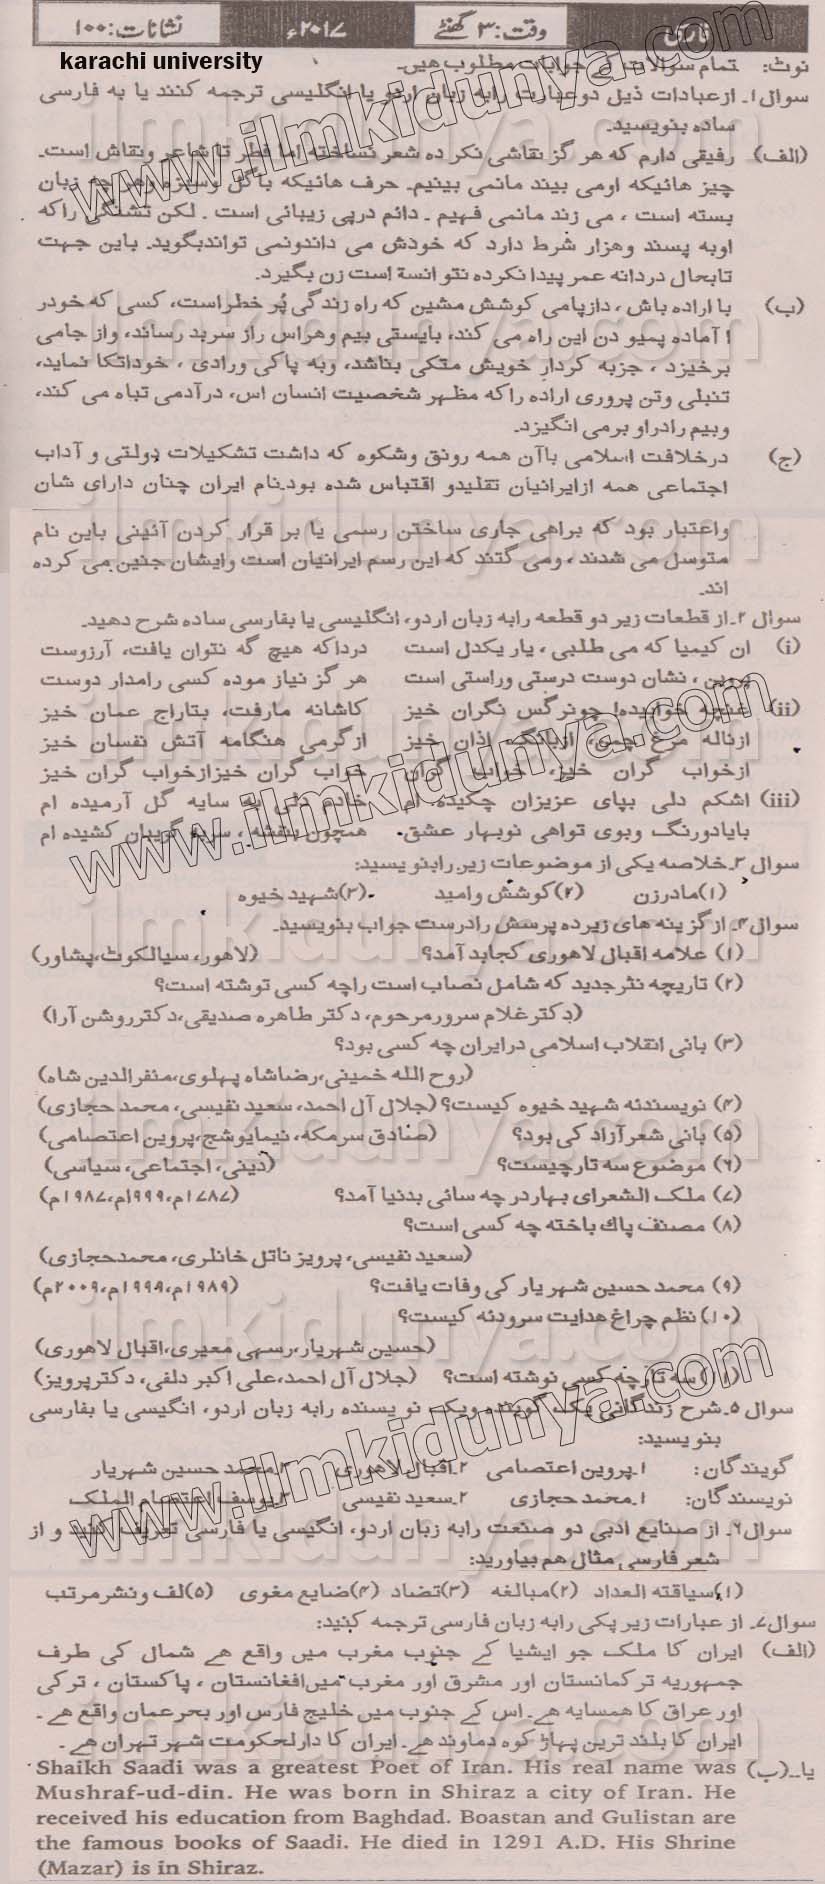 فارسی وقت: ۳ گھنٹے ۲۰۱۷ء نشانات: ۱۰۰
karachi university
نوٹ: تمام سوالات کے جوابات مطلوب ھیں۔
سوال ۱۔ ازعبادات ذیل دوعبارت رابه زبان اردو یا انگلیسی ترجمه کنند یا به فارسی
ساده بنویسید۔
(الف) رفیقی دارم که هر گز نقاشی نکر ده شعر نساخته اما فطر تا شاعر ونقاش است۔
چیز هائیکه اومی بیند مانمی بینیم۔ حرف هائیکه باگل وسبزه وهر چه زبان
بسته است ، می زند مانمی فهیم ۔ دائم درپی زیبائی است ۔ لکن تشنگی راکه
اوبه پسند وهزار شرط دارد که خودش می داندونمی تواندبگوید۔ باین جهت
تابحال دردانه عمر پیدا نکرده نتو انسة است زن بگیرد۔
(ب) با اراده باش ، دازپامی کوشش مشین که راه زندگی پُر خطراست، کسی که خودر
ا آماده پمیو دن این راه می کند، بایستی بیم وهراس راز سربد رساند، واز جامی
برخیزد ، جزبه کردار خویش متکی بناشد، وبه پاکی ورادی ، خوداتکا نماید،
تنبلی وتن پروری اراده راکه مظهر شخصیت انسان اس، درآدمی تباه می کند،
وبیم رادراو برمی انگیزد۔
(ج) درخلافت اسلامی باآن همه رونق وشکوه که داشت تشکیلات دولتی و آداب
اجتماعی همه ازایرانیان تقلیدو اقتباس شده بود۔نام ایران چنان دارای شان
واعتبار بود که براهی جاری ساختن رسمی یا بر قرار کردن آئینی باین نام
متوسل می شدند ، ومی گتند که این رسم ایرانیان است وایشان جنین می کرده
اند۔
سوال ۲۔از قطعات زیر دو قطعه رابه زبان اردو، انگلیسی یا بفارسی ساده شرح دهید۔
(i) ان کیمیا که می طلبی ، یار یکدل است درداکه هیچ گه نتوان یافت، آرزوست
پروین ، نشان دوست درستی وراستی است هر گز نیاز موده کسی رامدار دوست
(ii) غنچه خوابیده! چونرگس نگران خیز کاشانه مارفت، بتاراج عمان خیز
ازناله مرغ چمن، ازبانگ اذان خیز ازگرمی هنگامه آتش نفسان خیز
ازخواب گران خیز، خواب گران خواب گران خیزازخواب گران خیز
(iii) اشکم دلی بپای عزیزان چکیده ام خادم دلی به سایه گل آرمیده ام
بایادورنگ وبوی تواهی نوبهار عشق۔ همچون بنفشه ، سربه گریبان کشیده ام
سوال ۳۔خلاصه یکی از موضوعات زین رابنویسید:
(۱)مادرزن (۲)کوشش وامید (۳)شهید خیوه
سوال ۴۔ ازگزینه های زیرده پرسش رادرست جواب بنویسید۔
(۱) علامه اقبال لاهوری کجابد آمد؟ (لاهور، سیالکوٹ،پشاور)
(۲) تاریچه نثرجدید که شامل نصاب است راچه کسی توشته است؟
(دکترغلام سرورمرحوم، دکتر طاهره صدیقی،دکترروشن آرا)
(۳) بانی انقلاب اسلامی درایران چه کسی بود؟
(روح الله خمینی،رضاشاه پہلوی،منفرالدین شاه)
(۴) نویسندنه شهید خیوه کیست؟ (جلال آل احمد، سعید نفیسی، محمد حجازی)
(۵) بانی شعرآزاد کی بود؟ (صنادق سرمکه، نیمایوشج،پروین اعتصامی)
(۶) موضوع سه تارچیست؟ (دینی، اجتماعی، سیاسی)
(۷) ملک الشعرای بہاردر چه سائی بدنیا آمد؟ (۱۷۸۷م،۱۹۹۹م،۱۹۸۷م)
(۸) مصنف پاک باخته چه کسی است؟
(سعید نفیسی، پرویز ناتل خانلری، محمدحجازی)
(۹) محمد حسین شهر یار کی وفات یافت؟ (۱۹۸۹م،۱۹۹۹م،۲۰۰۹م)
(۱۰) نظم چراغ هدایت سرودئه کیست؟
(حسین شهریار،رسهی معیری،اقبال لاهوری)
(۱۱) سه تارچه کسی نوشته است؟ (جلال آل احمد،علی اکبر دلفی، دکترپرویز)
سوال ۵۔شرح زندگانی یک گوینده ویک نو یسنده رابه زبان اردو، انگیسی یا بفارسی
بنو یسید:
گویندگان: ۱۔پروین اعتصامی ۲۔اقبال لاهوری ۳۔محمد حسین شهریار
نویسندگان: ۱۔محمد حجازی ۲۔سعید نفیسی ۳۔یوسف اعتصام الملک
سوال ۶۔ از صنایع ادبی دو صنعت رابه زبان اردو، انگیسی یا فارسی تعریف کنید و از
شعر فارسی مثال هم بیاورید:
(۱)سیاقته العداد (۲)مبالغه (۳)تضاد (۴)ضایع مغوی (۵)لف ونشرمرتب
سوال ۷۔ از عبارات زیر یکی رابه زبان فارسی ترجمه کنید:
(الف) ایران کا ملک جو ایشیا کے جنوب مغرب میں واقع ھے شمال کی طرف
جمہوریه تر کمانستان اور مشرق اور مغرب میں افغانستان ، پاکستان ، ترکی
اور عراق کا همسایه ھے۔ اس کے جنوب میں خلیج فارس اور بحرعمان واقع ھے ۔
ایران کا بلند ترین پہاڑ کوه دماوند ھے۔ ایران کا دارلحکومت شہر تہران ھے ۔
یا۔۔(ب) Shaikh Saadi was a greatest Poet of Iran. His real name was
Mushraf-ud-din. He was born in Shiraz a city of Iran. He
received his education from Baghdad. Boastan and Gulistan are
the famous books of Saadi. He died in 1291 A.D. His Shrine
(Mazar) is in Shiraz.
www.ilmkidunya.com